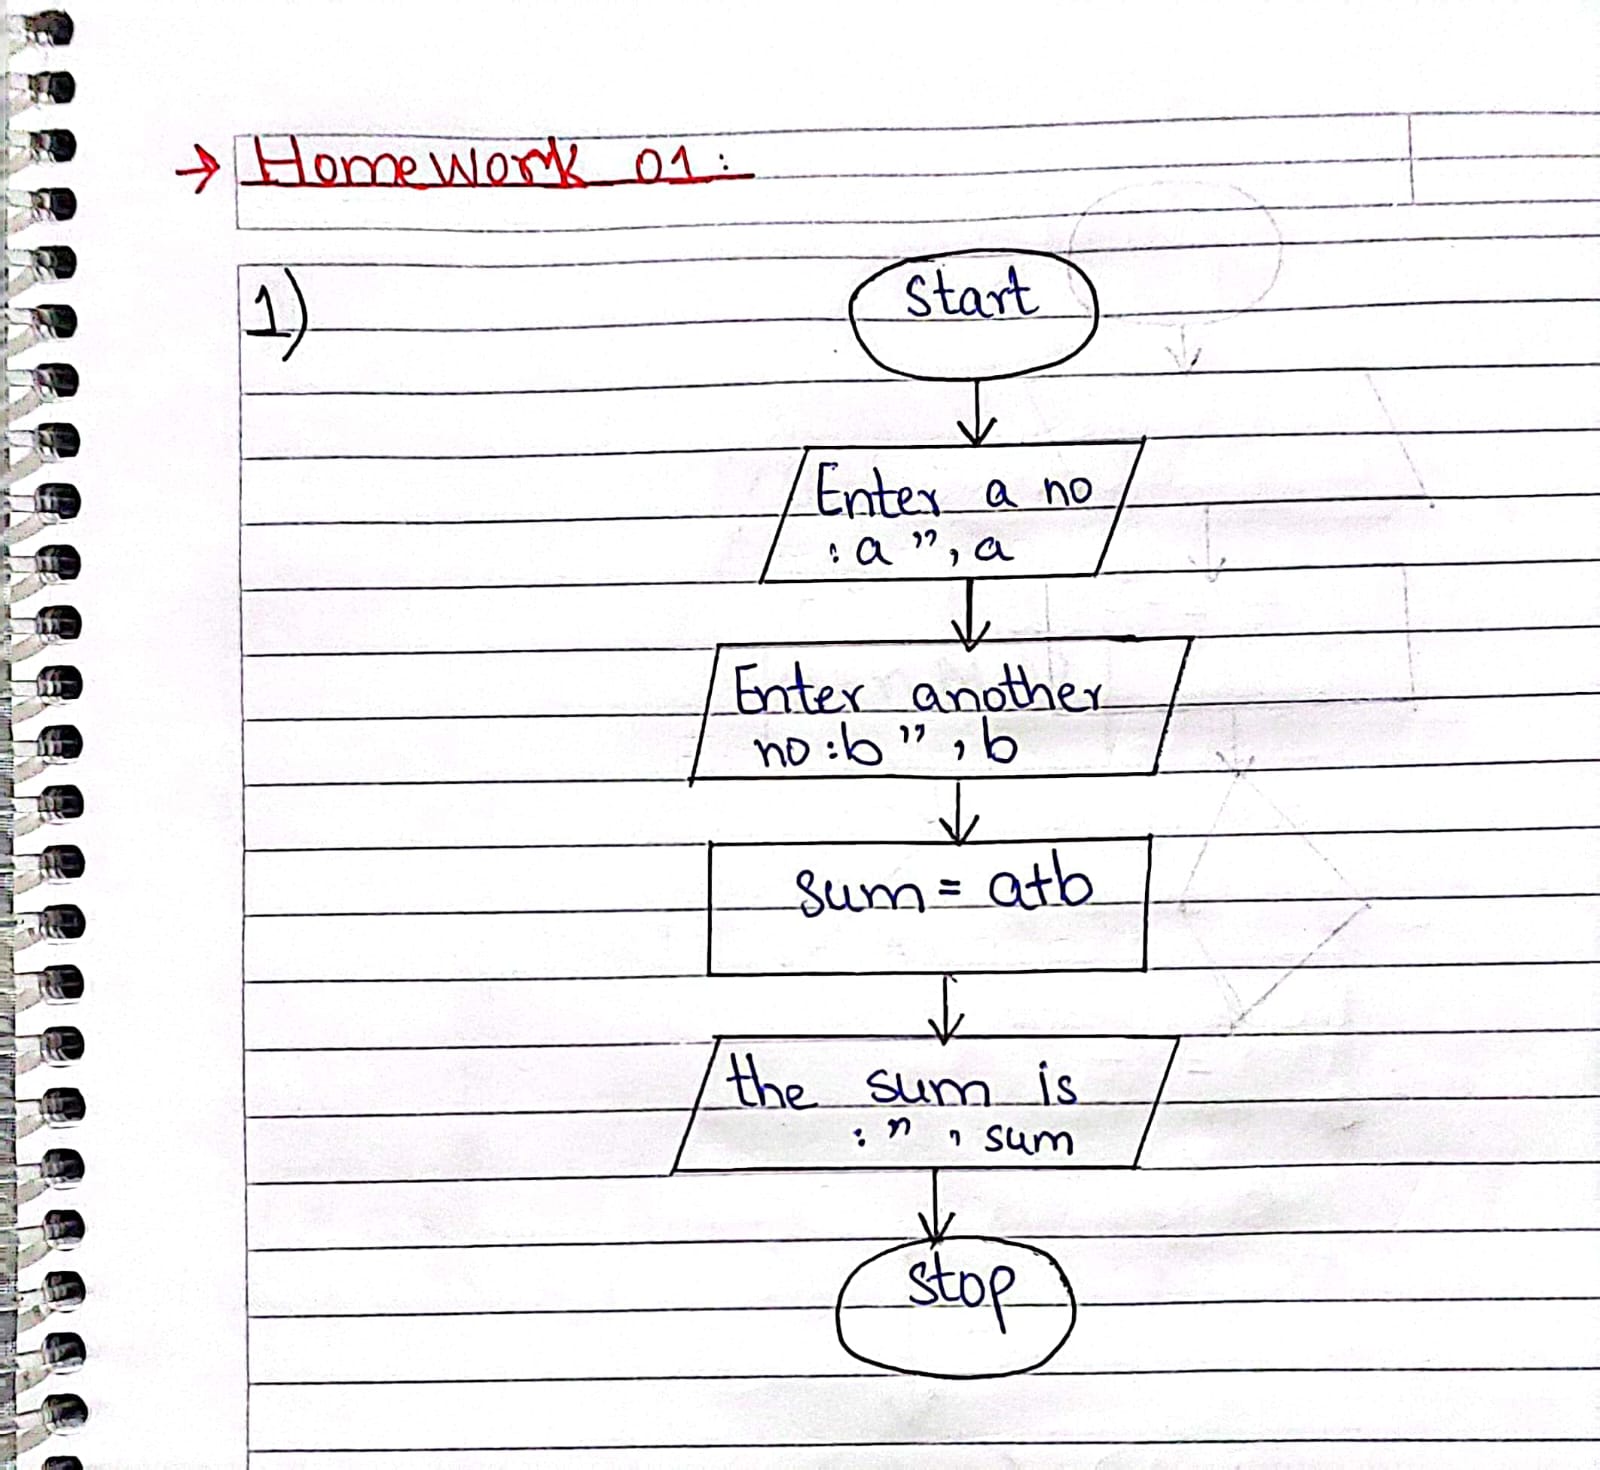 → Homework 01:
1)
Start
Enter a no
: a ”, a
Enter another
no : b ”, b
sum = a+b
the sum is
: ” , sum
stop